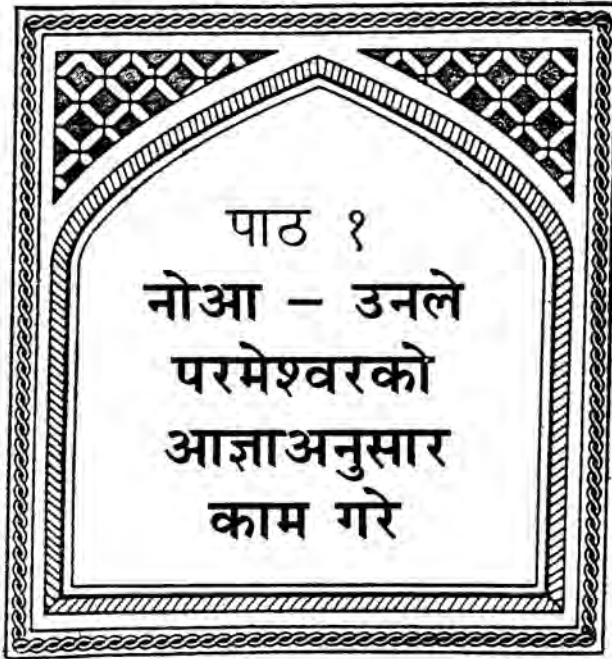 पाठ १
नोआ – उनले
परमेश्वरको
आज्ञाअनुसार
काम गरे